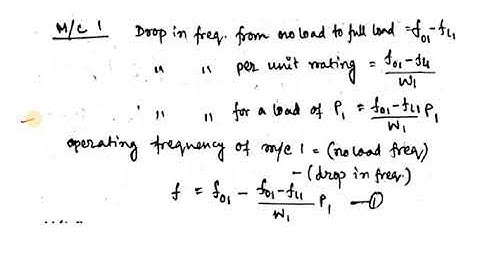 M/C 1 Drop in freq. from no load to full load = f01 - fL1
" " per unit rating = (f01 - fL1)/W1
" " for a load of P1 = (f01 - fL1)/W1 P1
operating frequency of m/c 1 = (no load freq)
- (drop in freq.)
f = f01 - (f01 - fL1)/W1 P1 — ①